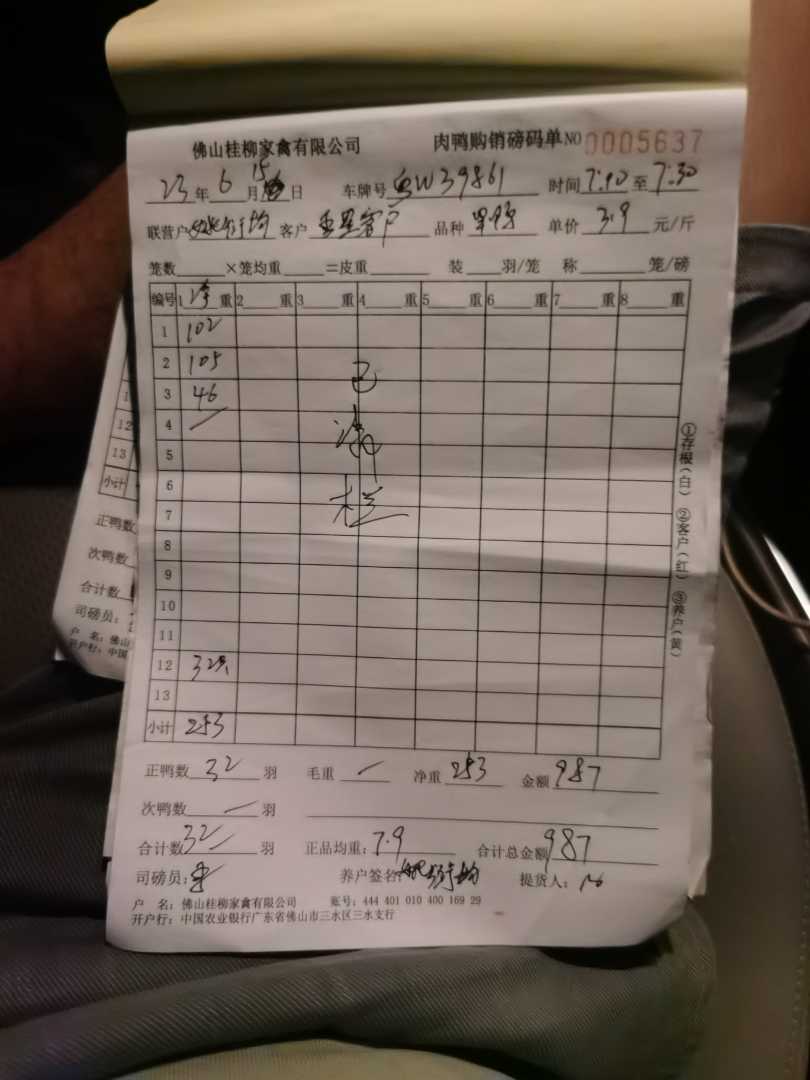 佛山桂柳家禽有限公司 肉鸭购销磅码单 NO 0005637
23年6月15日 车牌号 W39861 时间7:10至7:30
联营户 客户 客户 品种 单价 3.9 元/斤
笼数 ×笼均重 =皮重 装 羽/笼 称 笼/磅
编号 1 净重 2 重 3 重 4 重 5 重 6 重 7 重 8 重
1 102
2 105
3 46
4
5
6
7
8
9
10
11
12 32只
13
小计 253
已清栏
①存根(白) ②客户(红) ③养户(黄)
正鸭数 32 羽 毛重 净重 253 金额 987
次鸭数 羽
合计数 32 羽 正品均重: 7.9 合计总金额 987
司磅员: 养户签名: 提货人:
户 名: 佛山桂柳家禽有限公司 账号: 444 401 010 400 169 29
开户行: 中国农业银行广东省佛山市三水区三水支行
1
12
13
小计
正鸭数
次鸭数
合计数
司磅员:
户 名: 佛山
开户行: 中国